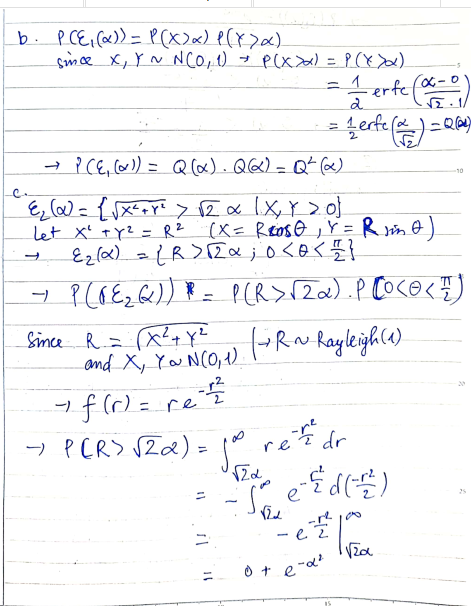 b. P(ε₁(α)) = P(X>α) P(Y>α)
since X, Y ~ N(0,1) → P(X>α) = P(Y>α)
= 1/2 erfc((α-0)/(√2 . 1))
= 1/2 erfc(α/√2) = Q(α)
→ P(ε₁(α)) = Q(α) . Q(α) = Q²(α)
10
c.
ε₂(α) = {√(X²+Y²) > √2 α | X, Y > 0}
Let X² + Y² = R² (X = R cos θ, Y = R sin θ)
→ ε₂(α) = {R > √2 α ; 0 < θ < π/2}
→ P(ε₂(α)) = P(R > √2 α) . P(0 < θ < π/2)
Since R = √(X²+Y²)
and X, Y ~ N(0,1) | → R ~ Rayleigh(1)
20
→ f(r) = r e^(-r²/2)
→ P(R > √2 α) = ∫_{√2α}^{∞} r e^(-r²/2) dr
= - ∫_{√2α}^{∞} e^(-r²/2) d(-r²/2)
25
= - e^(-r²/2) |_{√2α}^{∞}
= 0 + e^(-α²)
15